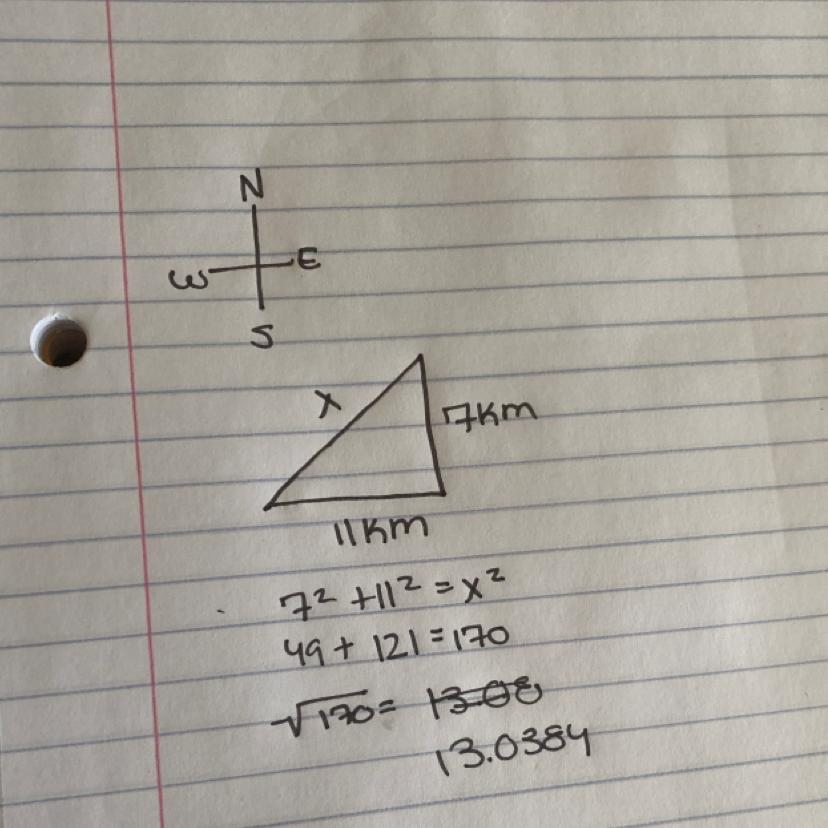 N
W E
S
x
7km
11km
7² + 11² = x²
49 + 121 = 170
√170 = 13.08
13.0384